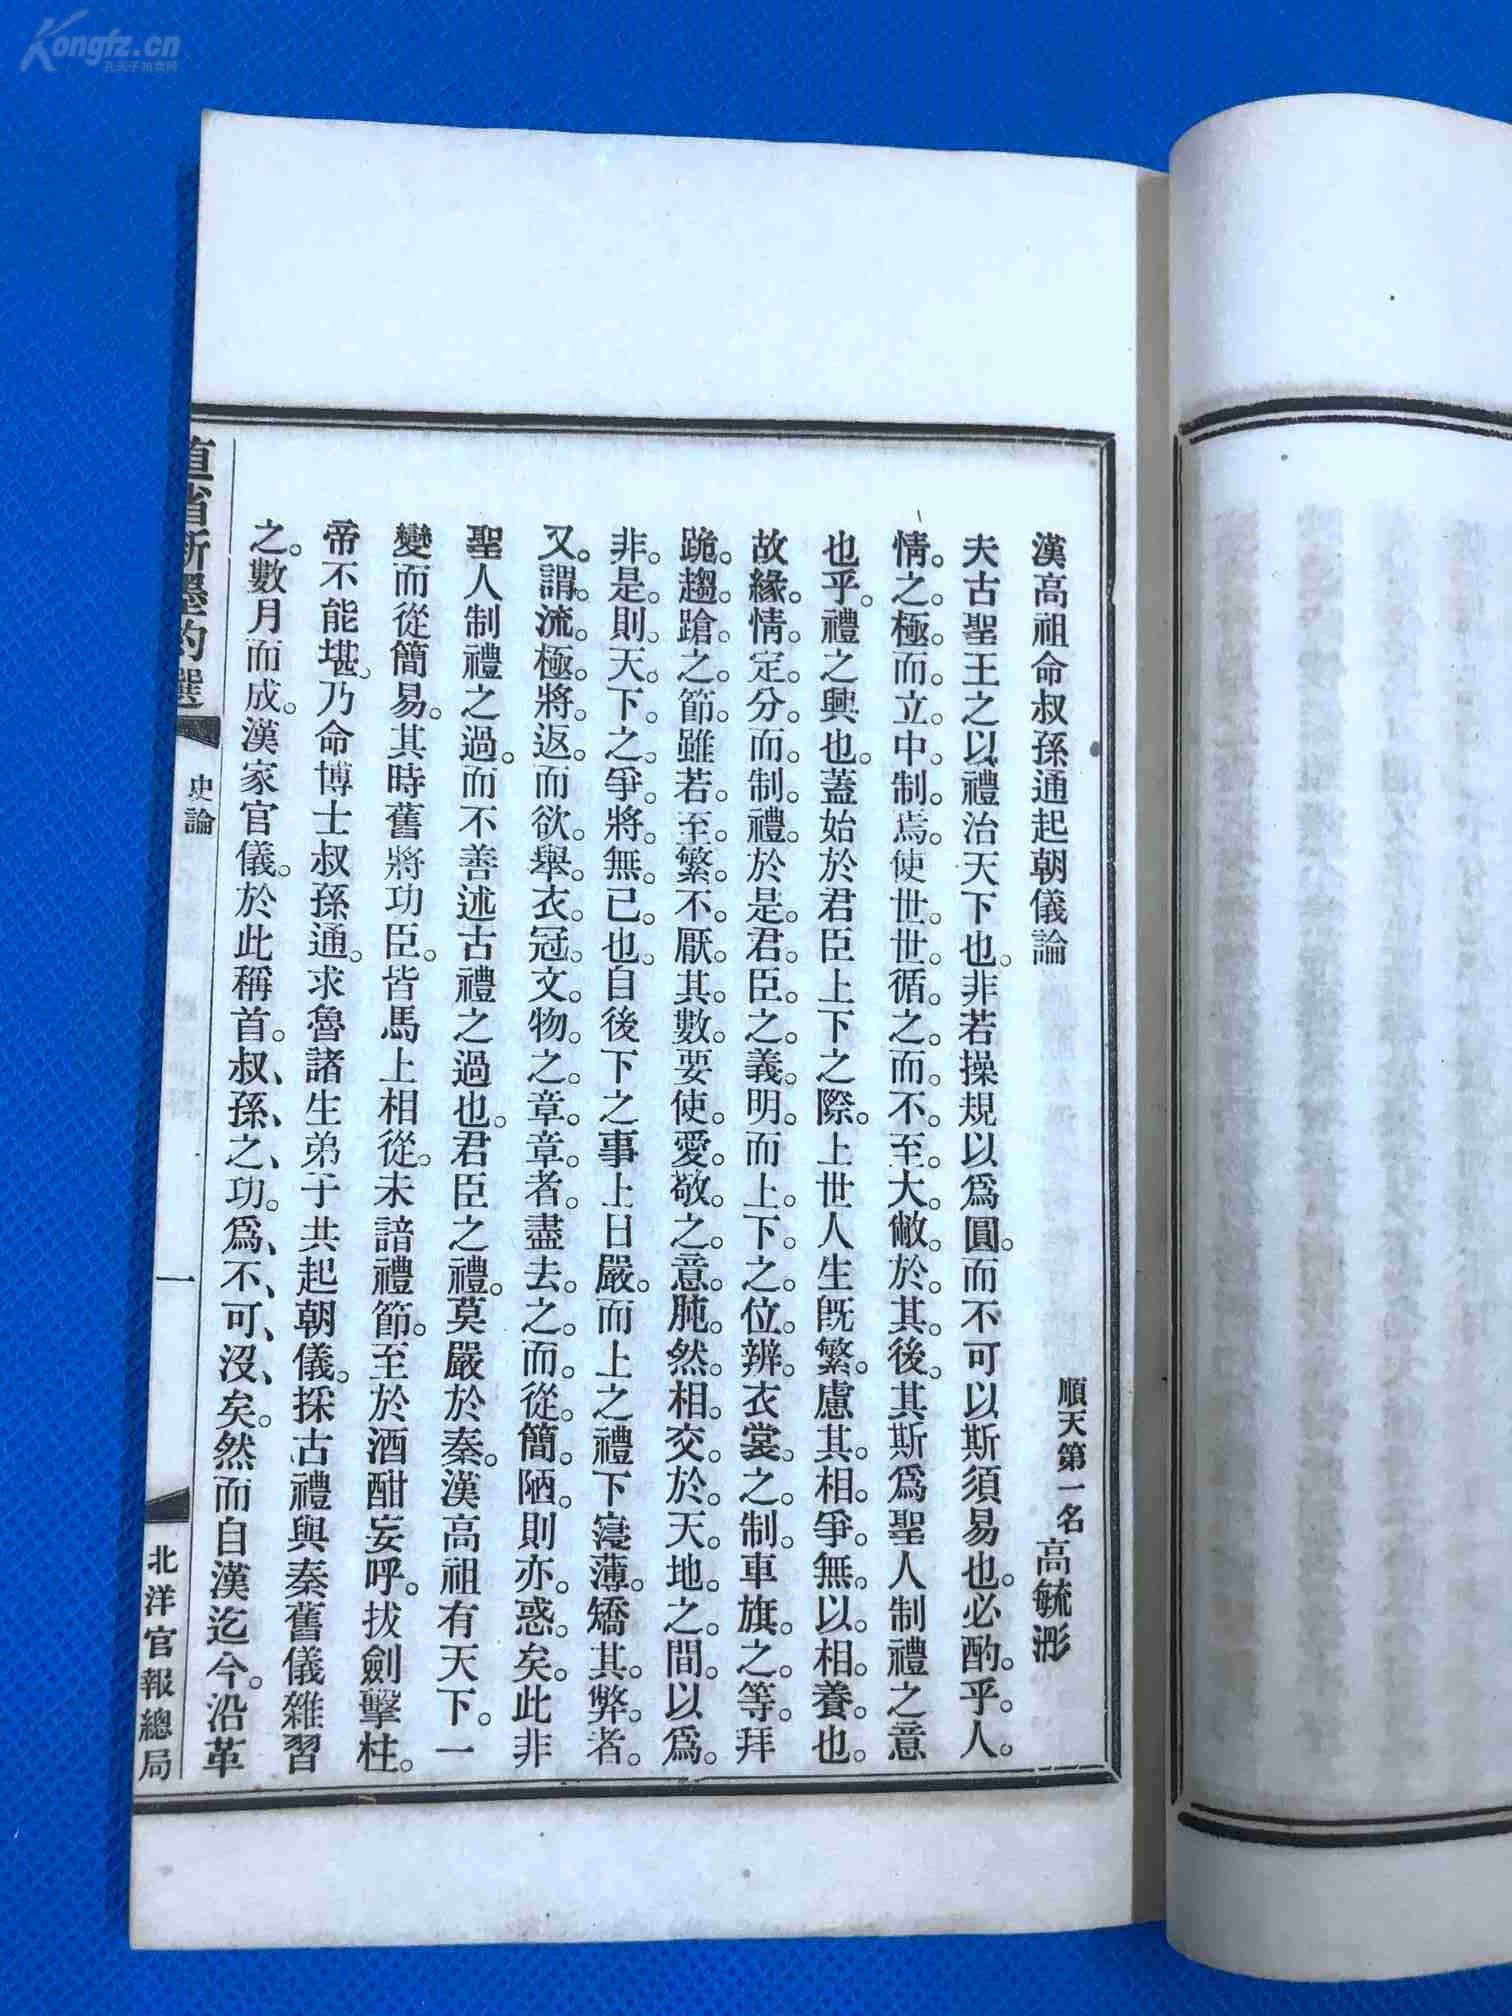 Kongfz.cn
孔夫子拍卖网
漢高祖命叔孫通起朝儀論
順天第一名 高毓浵
夫古聖王之以禮治天下也。非若操規以爲圓。而不可以斯須易也。必酌。乎。人。
情。之。極。而。立。中。制。焉。使。世。世。循。之。而。不。至。大。敝。於。其。後。其斯爲聖人制禮之意
也乎。禮之興也。蓋始於君臣上下之際。上世人生既繁。慮其。相。爭。無。以。相。養。也。
故。緣。情。定。分。而。制。禮。於。是。君。臣。之。義。明。而上。下。之。位。辨。衣。裳。之。制。車旗。之。等。拜
跪。趨。蹌。之。節。雖若。至。繁。不。厭。其。數。要使。愛。敬。之。意。肫。然。相。交。於。天。地。之。間。以爲。
非。是。則。天。下。之。爭。將。無。已。也。自後下之事上日嚴。而上之禮下寖薄。矯其。弊。者。
又。謂。流。極。將。返。而欲。舉。衣。冠。文。物。之。章。章。者。盡去。之。而。從。簡。陋。則亦。惑。矣。此非
聖人制禮之過。而不善述古禮之過也。君臣之禮。莫嚴於秦。漢高祖有天下。一
變而從簡易。其時舊將功臣。皆馬上相從。未諳禮節。至於酒酣妄呼。拔劍擊柱。
帝不能堪。乃命博士叔孫通。求魯諸生弟子共起朝儀。採古禮與秦舊儀雜習
之。數月而成。漢家官儀。於此稱首。叔、孫、之、功。爲、不、可、沒、矣。然而自漢迄今。沿革
直省新墨約選
史論
一
北洋官報總局